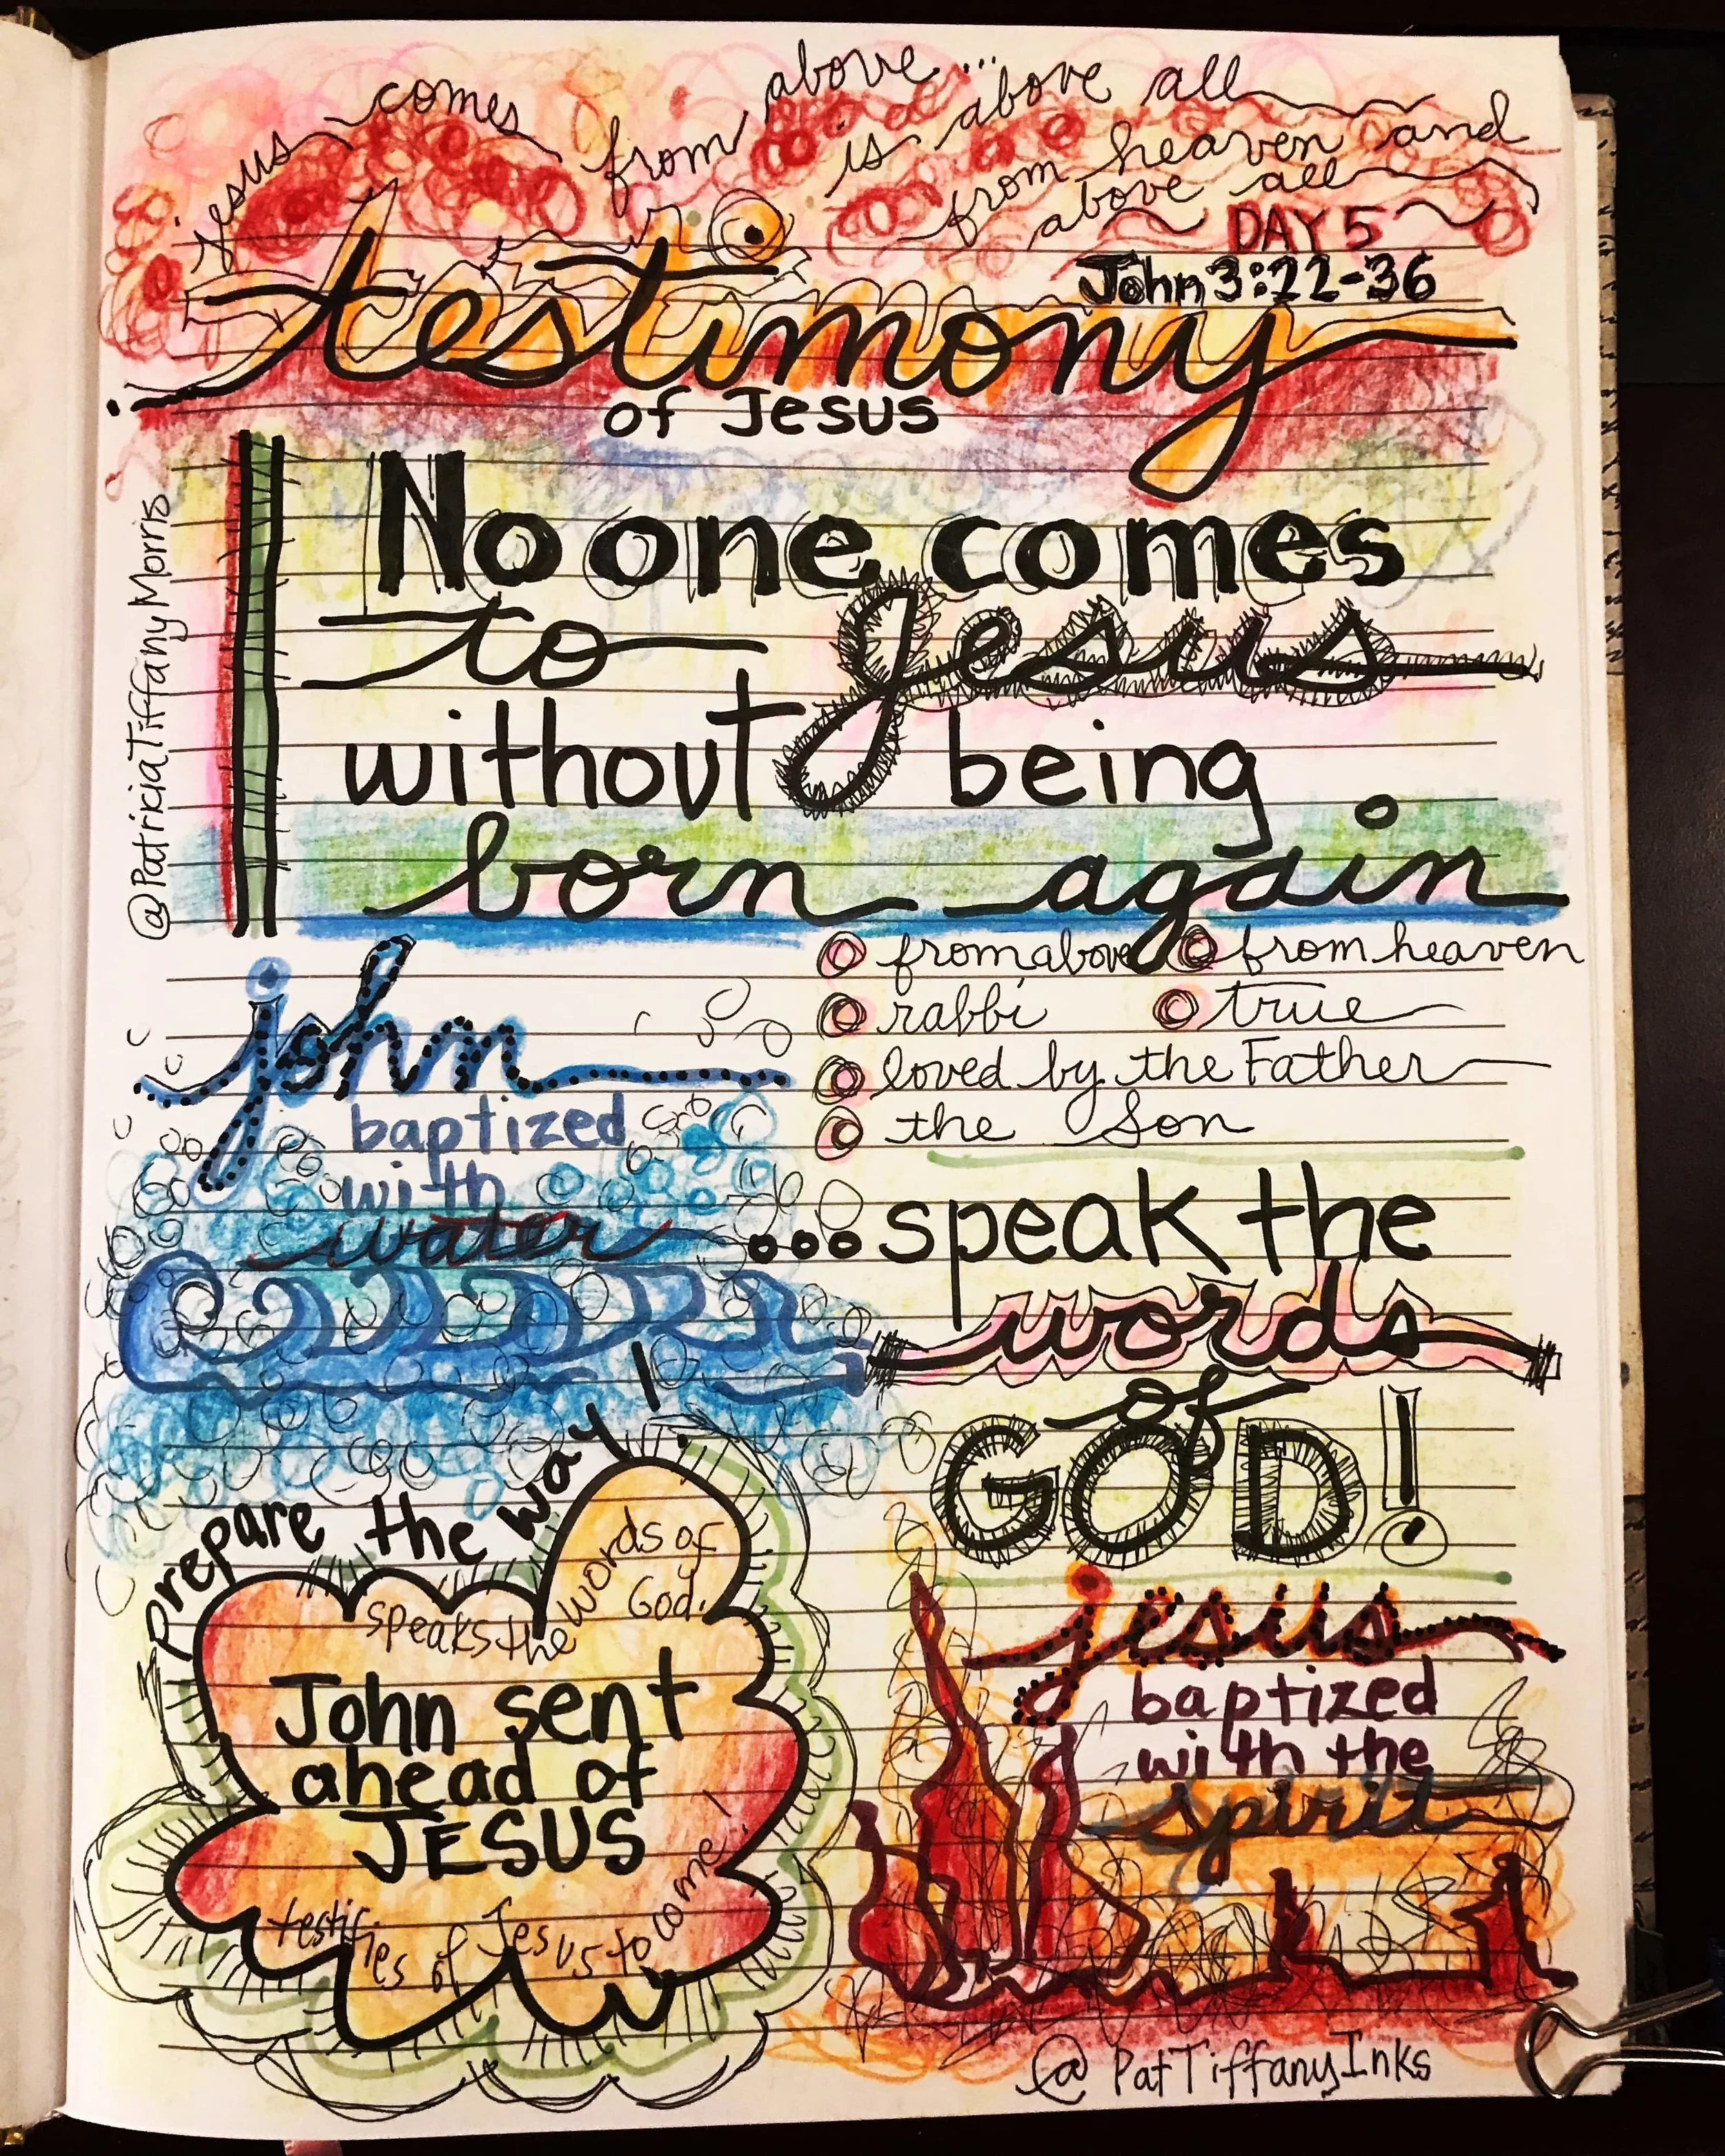 Jesus comes from above... is above all
from heaven and
above all
DAY 5
John 3:22-36
testimony
of Jesus
No one comes
to Jesus
without being
born again
@PatriciaTiffanyMorris
from above
from heaven
rabbi
true
loved by the Father
the Son
john
baptized
with
water
...speak the
words
of
GOD!
Prepare the way!
speaks the words of
God.
John sent
ahead of
JESUS
testifies of Jesus to come!
jesus
baptized
with the
spirit
@PatTiffanyInks